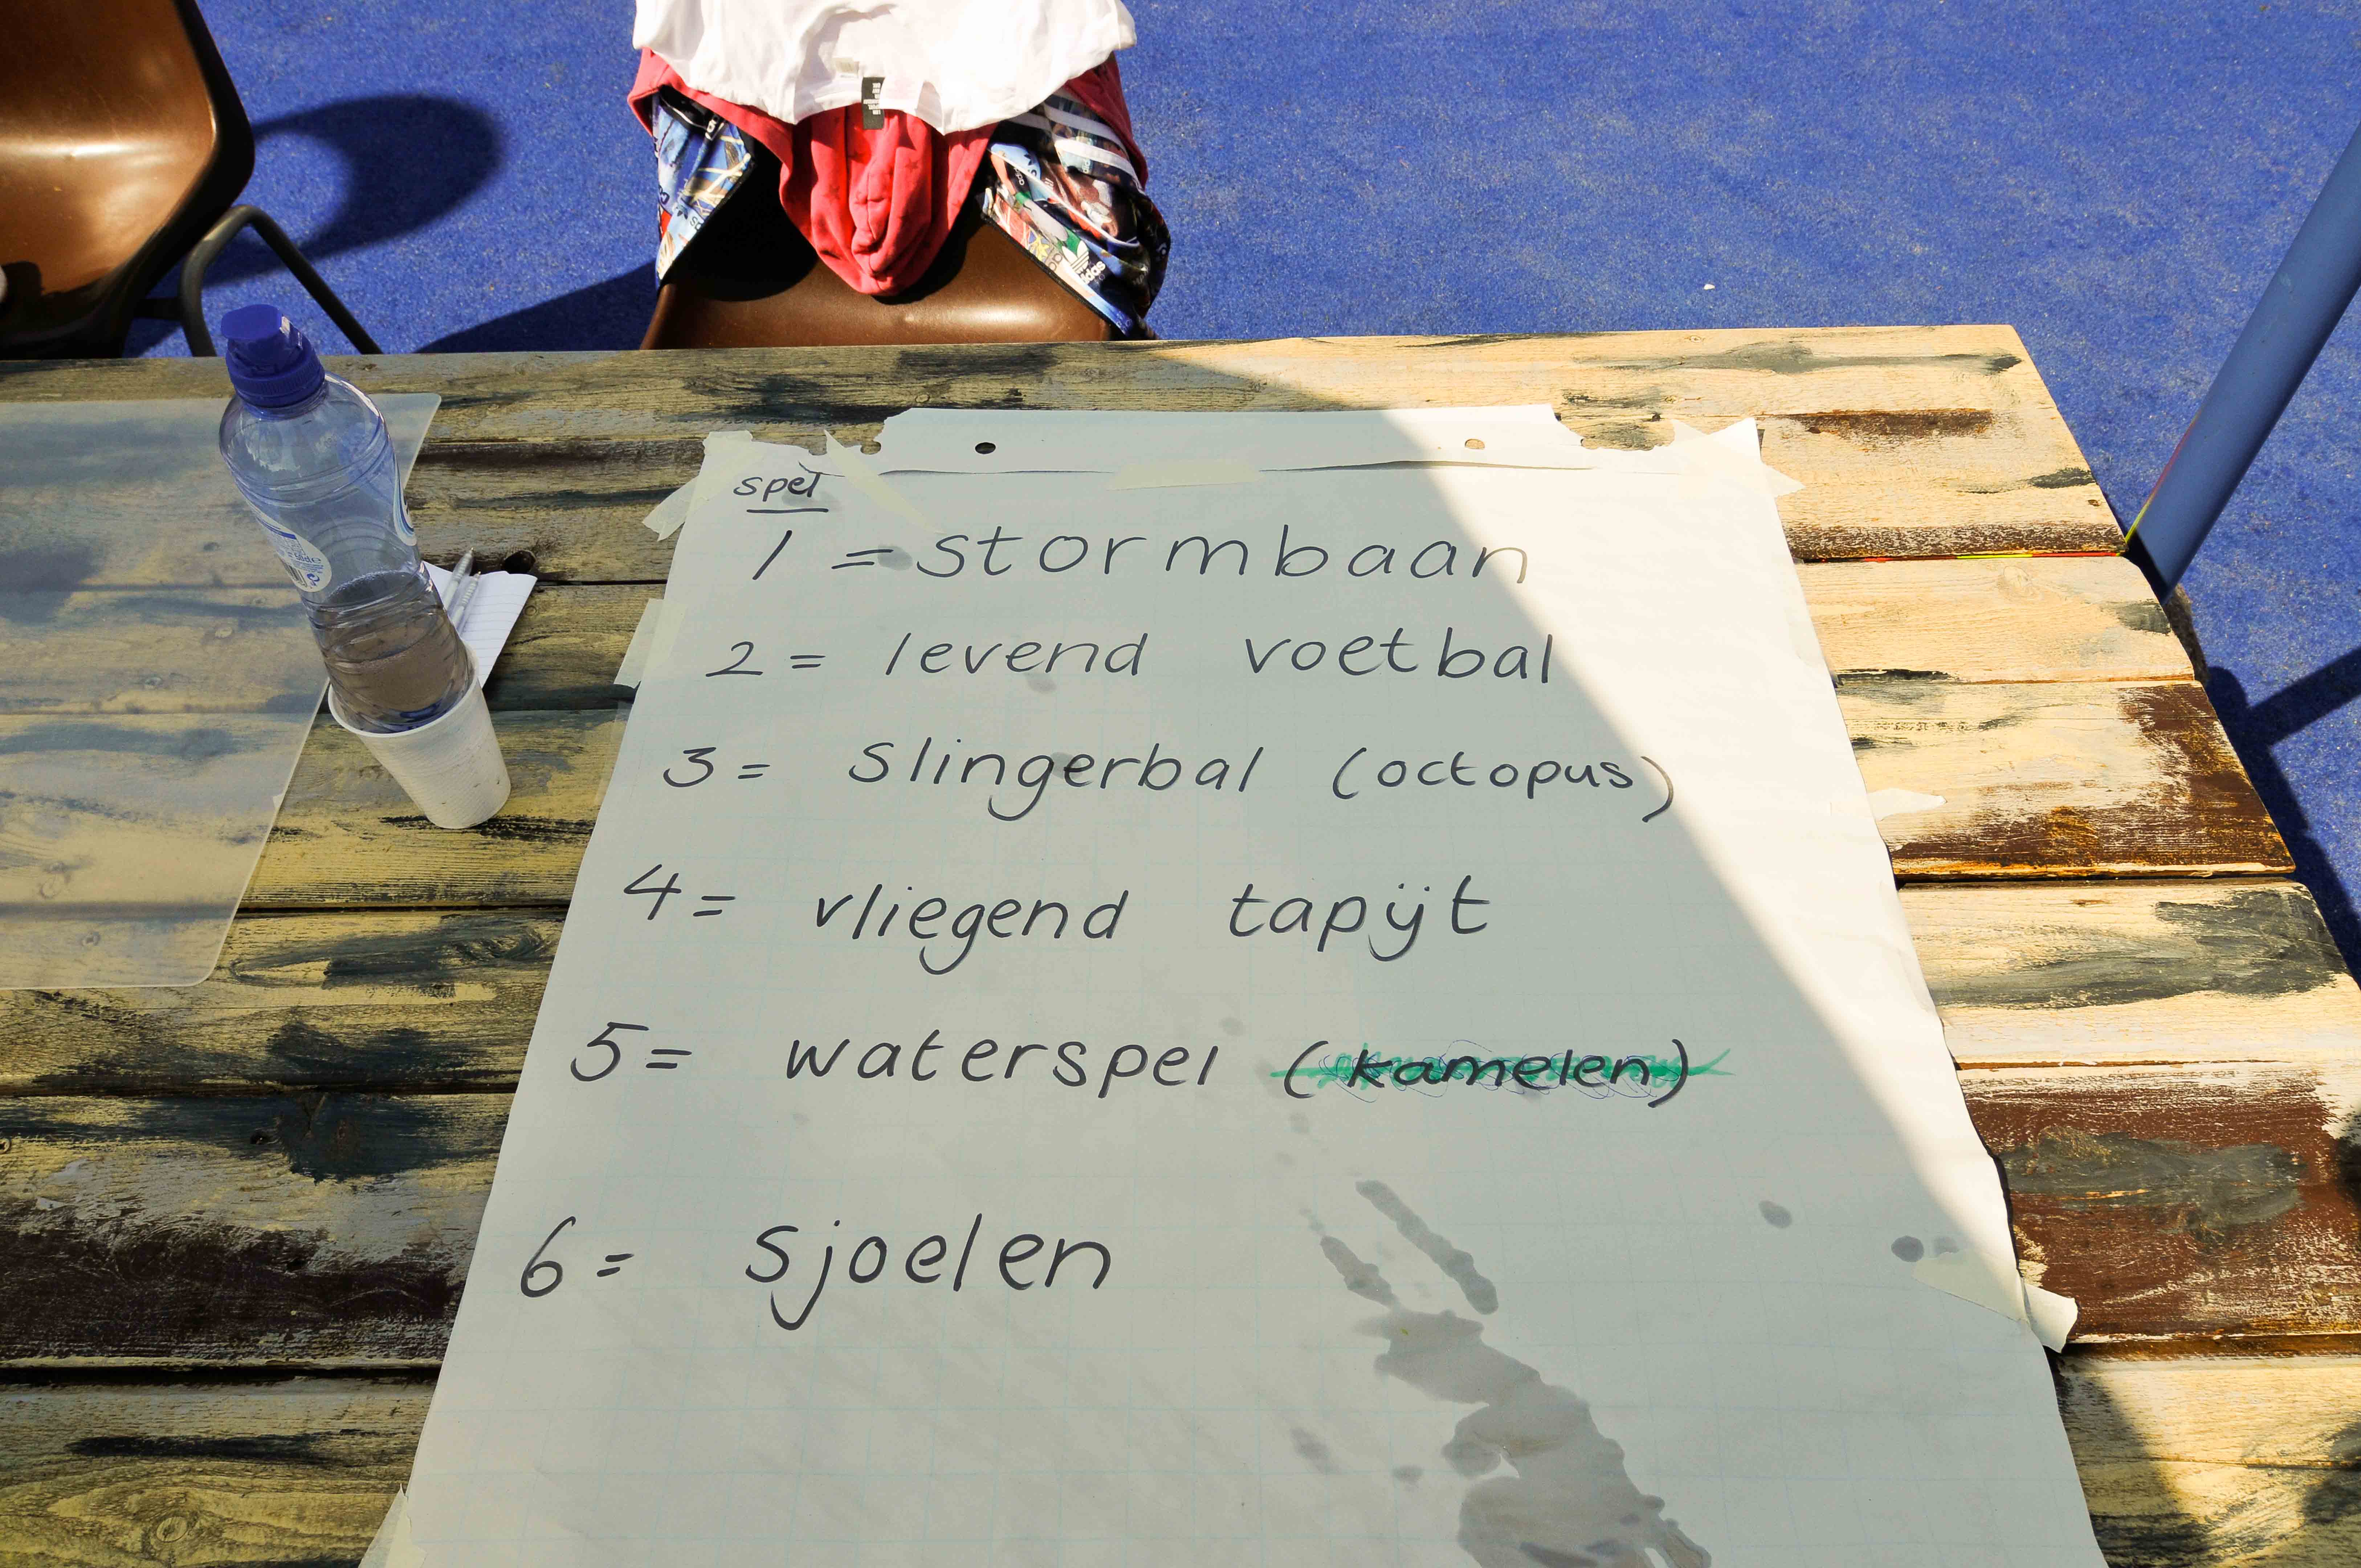 spel
1 = stormbaan
2 = levend voetbal
3 = slingerbal (octopus)
4 = vliegend tapijt
5 = waterspel (kamelen)
6 = sjoelen
adidas